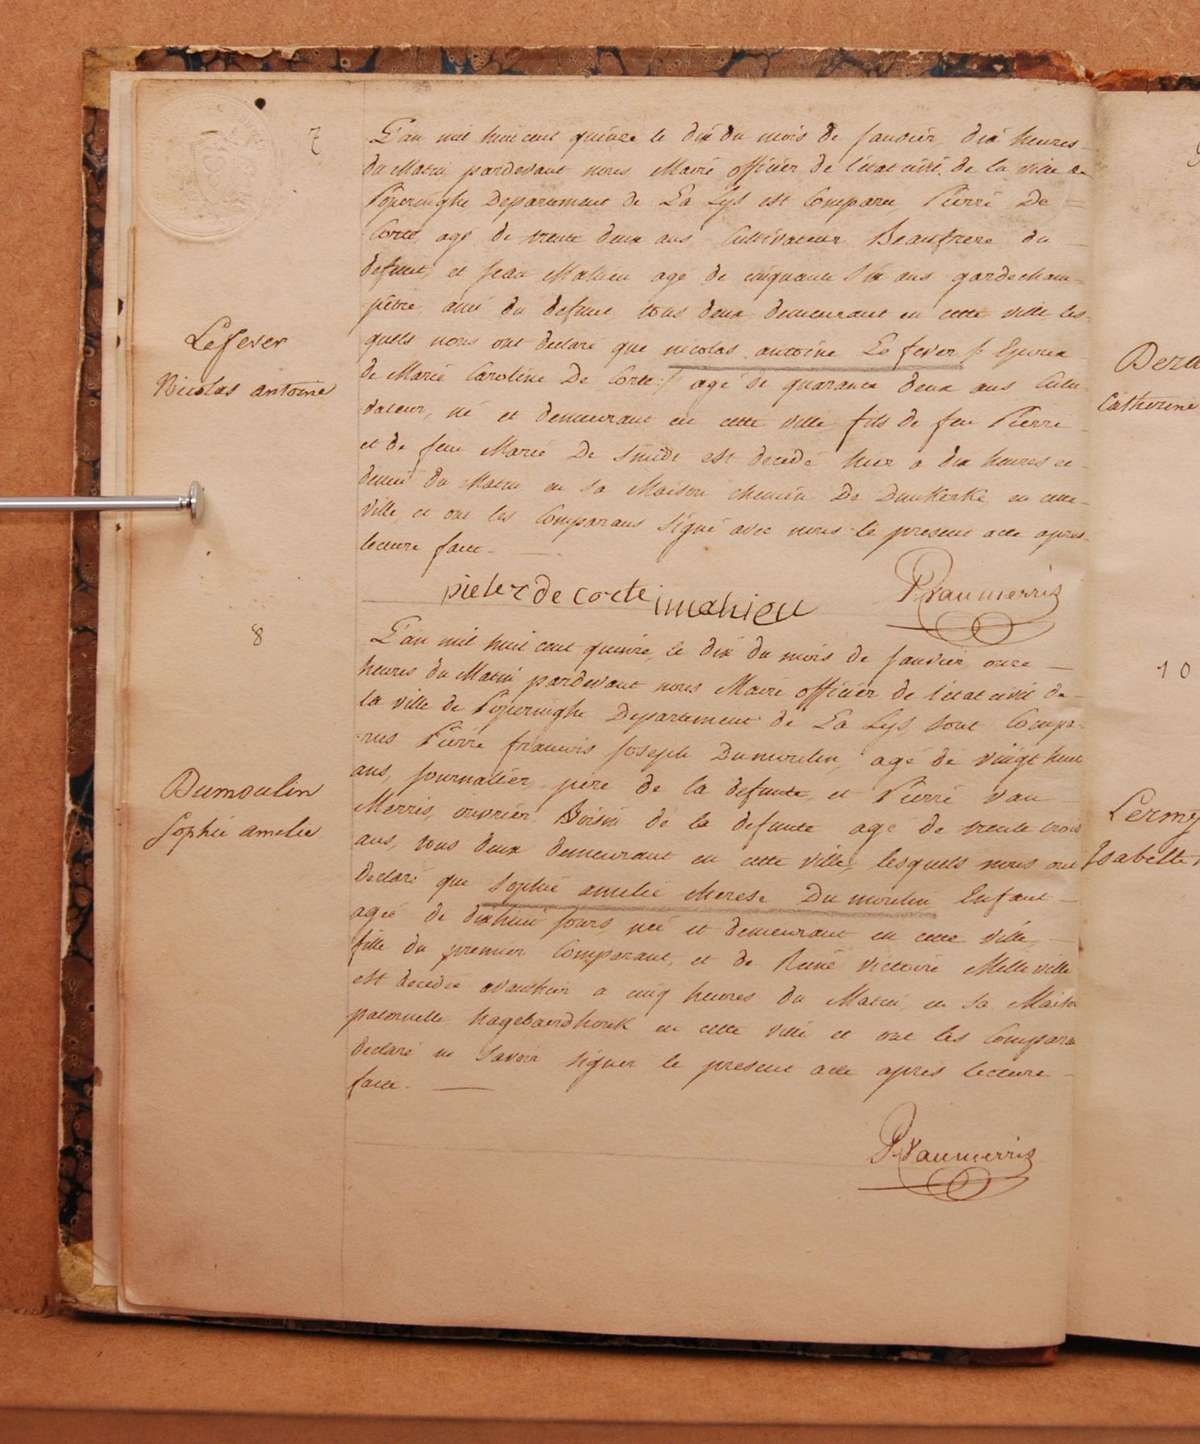 7
L'an mil huit cent quinze le dix du mois de Janvier, dix heures
du Matin pardevant nous Maire officier de l'état civil de la ville de
Poperinghe Departement de La Lys est Comparu Pierre De
Corte, agé de trente deux ans Cultivateur Beaufrere du
defunt, et Jean Mahieu agé de cinquante Six ans gardecham-
pêtre, ami du defunt tous deux demeurant en cette ville les-
quels nous ont declaré que nicolas antoine Le fever Epoux
de Marie Caroline De Corte agé de quarante deux ans Culti
vateur, né et demeurant en cette ville fils de feu Pierre
et de feue Marie De Smidt est decedé hier a dix heures et
demie du Matin en sa Maison chemin De Dunkerke en cette
ville, et ont les Comparans Signé avec nous le present acte apres
lecture faite.
Lefever
Nicolas antoine
pieter de corte j mahieu PVanmerris
8
L'an mil huit cent quinze, le dix du mois de Janvier onze
heures du Matin pardevant nous Maire officier de l'état civil de
la ville de Poperinghe Departement de La Lys sont Compa-
-rus Pierre francois Joseph Dumoulin, agé de vingt huit
ans, Journalier, père de la defunte, et Pierre Van
Merris, ouvrier Voisin de la defunte agé de trente trois
ans, tous deux demeurant en cette ville, lesquels nous ont
declaré que Sophie amelie therese Du moulin Enfant
agée de dixhuit Jours née et demeurant en cette ville,
fille du premier Comparant, et de René victoire Melleville
est decedée avanthier a cinq heures du Matin, en sa Maison
paternelle hagebaerdhouk en cette ville et ont les Compara
declaré ne Savoir signer le present acte apres lecture
faite.
Dumoulin
Sophie amelie
PVanmerris
Catherine
10
Lermy
Isabelle